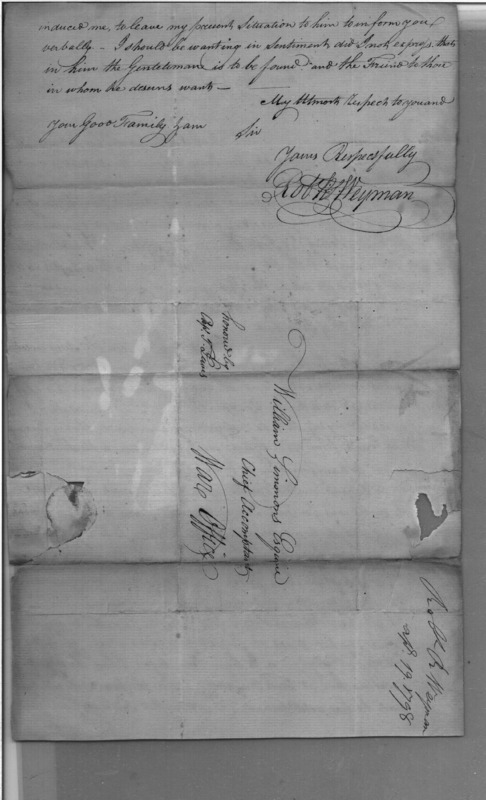 induced me, to leave my present Situation to him to inform you
verbally - I should be wanting in Sentiment, did I not express, that
in him the Gentelemane is to be found and the Friend to those
in whom he deserns want -
My Utmost Respect to you and
your Good Family I am
Sir
Yours Respectfully
Robt R Weyman
honored by
Capt. T Lewis
William Simmons Esquire
Chief Accomptant
War Office
Robt R Waymon
apl. 19. 1798